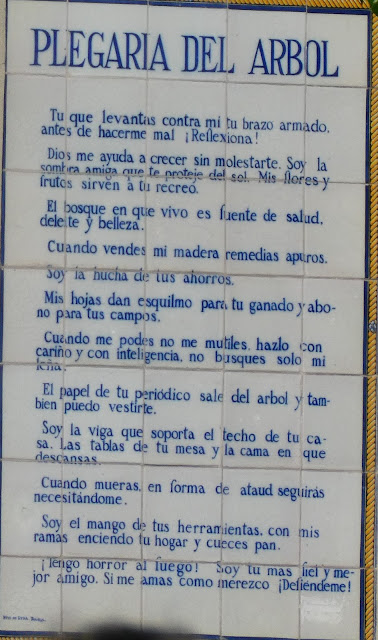 PLEGARIA DEL ARBOL
Tu que levantas contra mi tu brazo armado,
antes de hacerme mal ¡Reflexiona!
Dios me ayuda a crecer sin molestarte. Soy la
sombra amiga que te proteje del sol. Mis flores y
frutos sirven a tu recreo.
El bosque en que vivo es fuente de salud,
deleite y belleza.
Cuando vendes mi madera remedias apuros.
Soy la hucha de tus ahorros.
Mis hojas dan esquilmo para tu ganado y abo-
no para tus campos.
Cuando me podes no me mutiles, hazlo con
cariño y con inteligencia, no busques solo mi
leña.
El papel de tu periódico sale del arbol y tam-
bien puedo vestirte.
Soy la viga que soporta el techo de tu ca-
sa. Las tablas de tu mesa y la cama en que
descansas.
Cuando mueras, en forma de ataud seguirás
necesitándome.
Soy el mango de tus herramientas, con mis
ramas enciendo tu hogar y cueces pan.
¡Tengo horror al fuego! Soy tu mas fiel y me-
jor amigo. Si me amas como merezco ¡Defiéndeme!